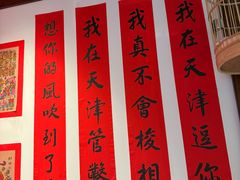 我在天津逗你
我真不會梭相
我在天津管鱉
想你的風吹到了